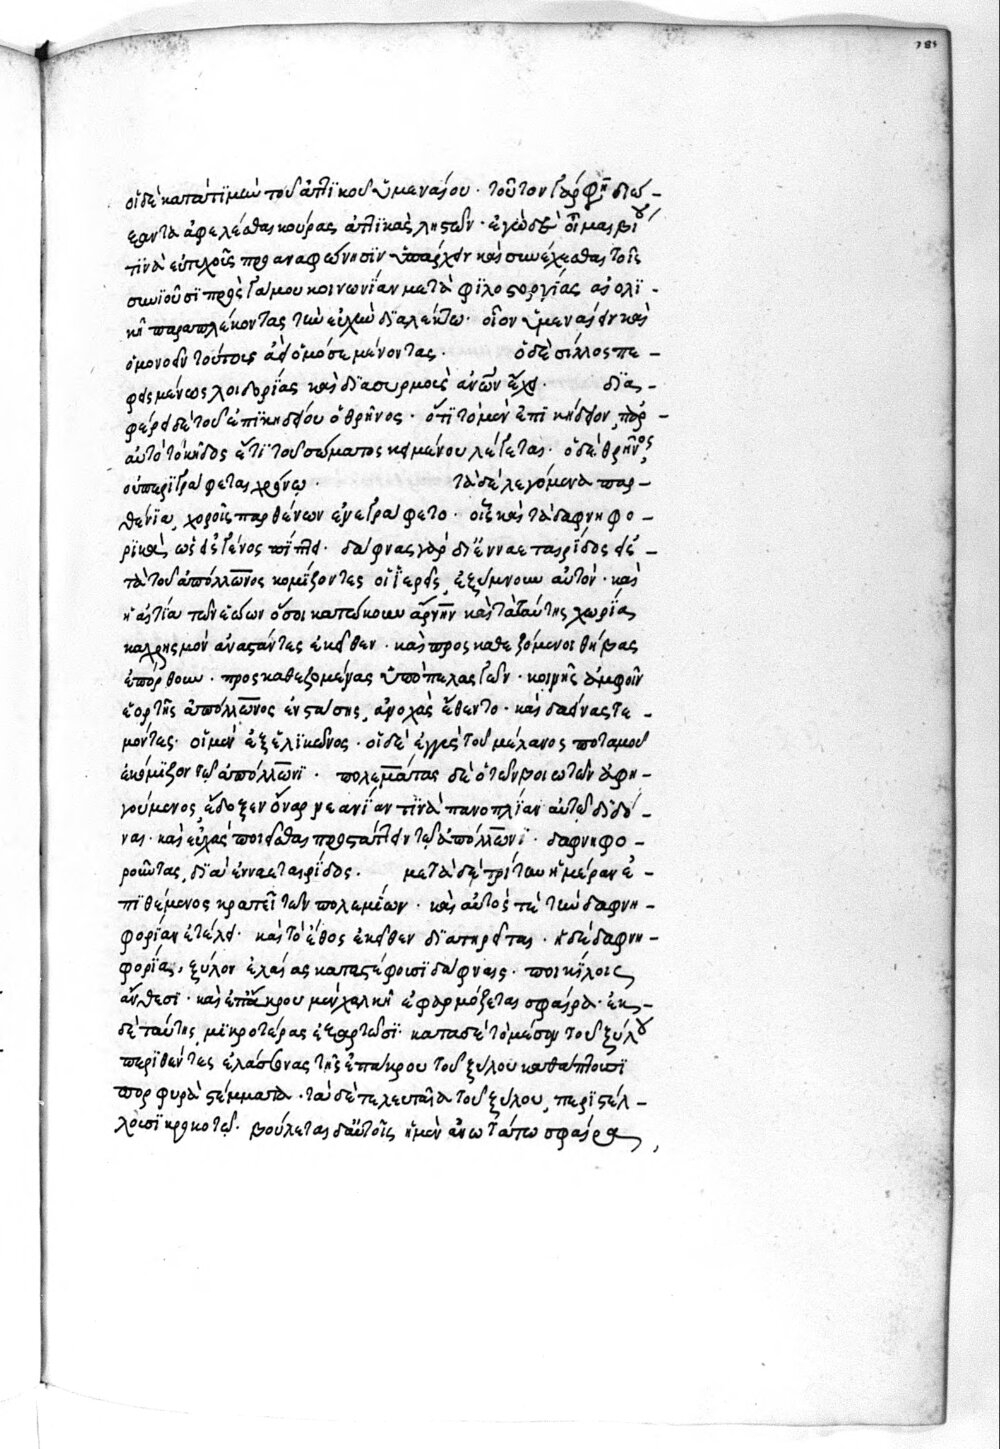 785
οἱ δὲ κατὰ τιμὴν τοῦ ἀττικοῦ ὑμεναίου · τοῦτον γάρ φη
τινὰ εὐτυχοῖς προαναφώνησιν ὑπάρχειν καὶ συνέχεσθαι τοῖς
συνιοῦσι πρὸς γάμου κοινωνίαν μετὰ φιλοστοργίας αἰολι -
κῆ παραπλέκοντας τὴν εὐχὴν διαλέκτω · οἷον ὑμεναίειν καὶ
ὁμονοεῖν τούτοις ἀεὶ ὁμόσε μένοντας . ὁ δὲ σίλλος πε -
φεισμένως λοιδορίας καὶ διασυρμοὺς ἀνων ἔχει · δια -
φέρει δὲ τοῦ ἐπικηδείου ὁ θρῆνος · ὅτι τὸ μὲν ἐπικήδειον, παρ
αὐτὸ τὸ κῆδος ἔτι τοῦ σώματος κειμένου λέγεται · ὁ δὲ θρῆνος,
οὐ περιγράφεται χρόνω · τὰ δὲ λεγόμενα παρ -
θένια, χοροῖς παρθένων ἐνεγράφετο · οἷς καὶ τὰ δαφνηφο -
ρικὰ, ὡς εἰς γένος πίπτει · δάφνας γὰρ δι ἐνναετηρίδος εἰς
τὰ τοῦ ἀπόλλωνος κομίζοντες οἱ ἱερεῖς, ἐξύμνουν αὐτὸν · καὶ
ἡ αἰτία τῶν αἰολέων ὅσοι κατώκουν ἄρνην καὶ τὰ ταύτης χωρία
κατὰ χρησμὸν ἀναστάντες ἐκεῖθεν · καὶ προσκαθεζόμενοι θήβας
ἐπόρθουν · προσκαθεζομένας ὑπὸ πελασγῶν · κοινῆς ἀμφοῖν
ἑορτῆς ἀπόλλωνος ἐνστάσης, ἀνοχὰς ἔθεντο · καὶ δάφνας τέ -
μοντες · οἱ μὲν ἐξ ἑλικῶνος · οἱ δὲ ἐγγὺς τοῦ μέλανος ποταμοῦ
ἐκόμιζον τῶ ἀπόλλωνι · πολεμάτας δὲ ὁ τῶν βοιωτῶν ἀφη -
γούμενος, ἔδοξεν ὄναρ νεανίαν τινὰ πανοπλίαν αὐτῶ διδό -
ναι · καὶ εὐχὰς ποιεῖσθαι προστάττειν τῶ ἀπόλλωνι · δαφνηφο -
ροῦντας, διὰ ἐνναετηρίδος . μετὰ δὲ τρίτην ἡμέραν ἐ -
πιθέμενος κρατεῖ τῶν πολεμίων · καὶ αὐτὸς τὲ τὴν δαφνη -
φορίαν ἐτέλει · καὶ τὸ ἔθος ἐκεῖθεν διατηρεῖται · ἡ δὲ δαφνη -
φορία, ξύλον ἐλαίας καταστέφουσι δάφναις · ποικίλοις
ἄνθεσι · καὶ ἐπ ἄκρου μὲν χαλκῆ ἐφαρμόζεται σφαίρα · ἐκ -
δὲ ταύτης, μικροτέρας ἐξαρτῶσι · κατὰ δὲ τὸ μέσον τοῦ ξύλου
περιθέντες ἐλάσσονα τῆς ἐπάκρου τοῦ ξύλου καθάπτουσι
πορφυρᾶ στέμματα · τὰ δὲ τελευταῖα τοῦ ξύλου, περιστέλ -
λουσι κροκωτῶ · βούλεται δ αὐτοῖς ἡ μὲν ἀνωτάτω σφαίρα,